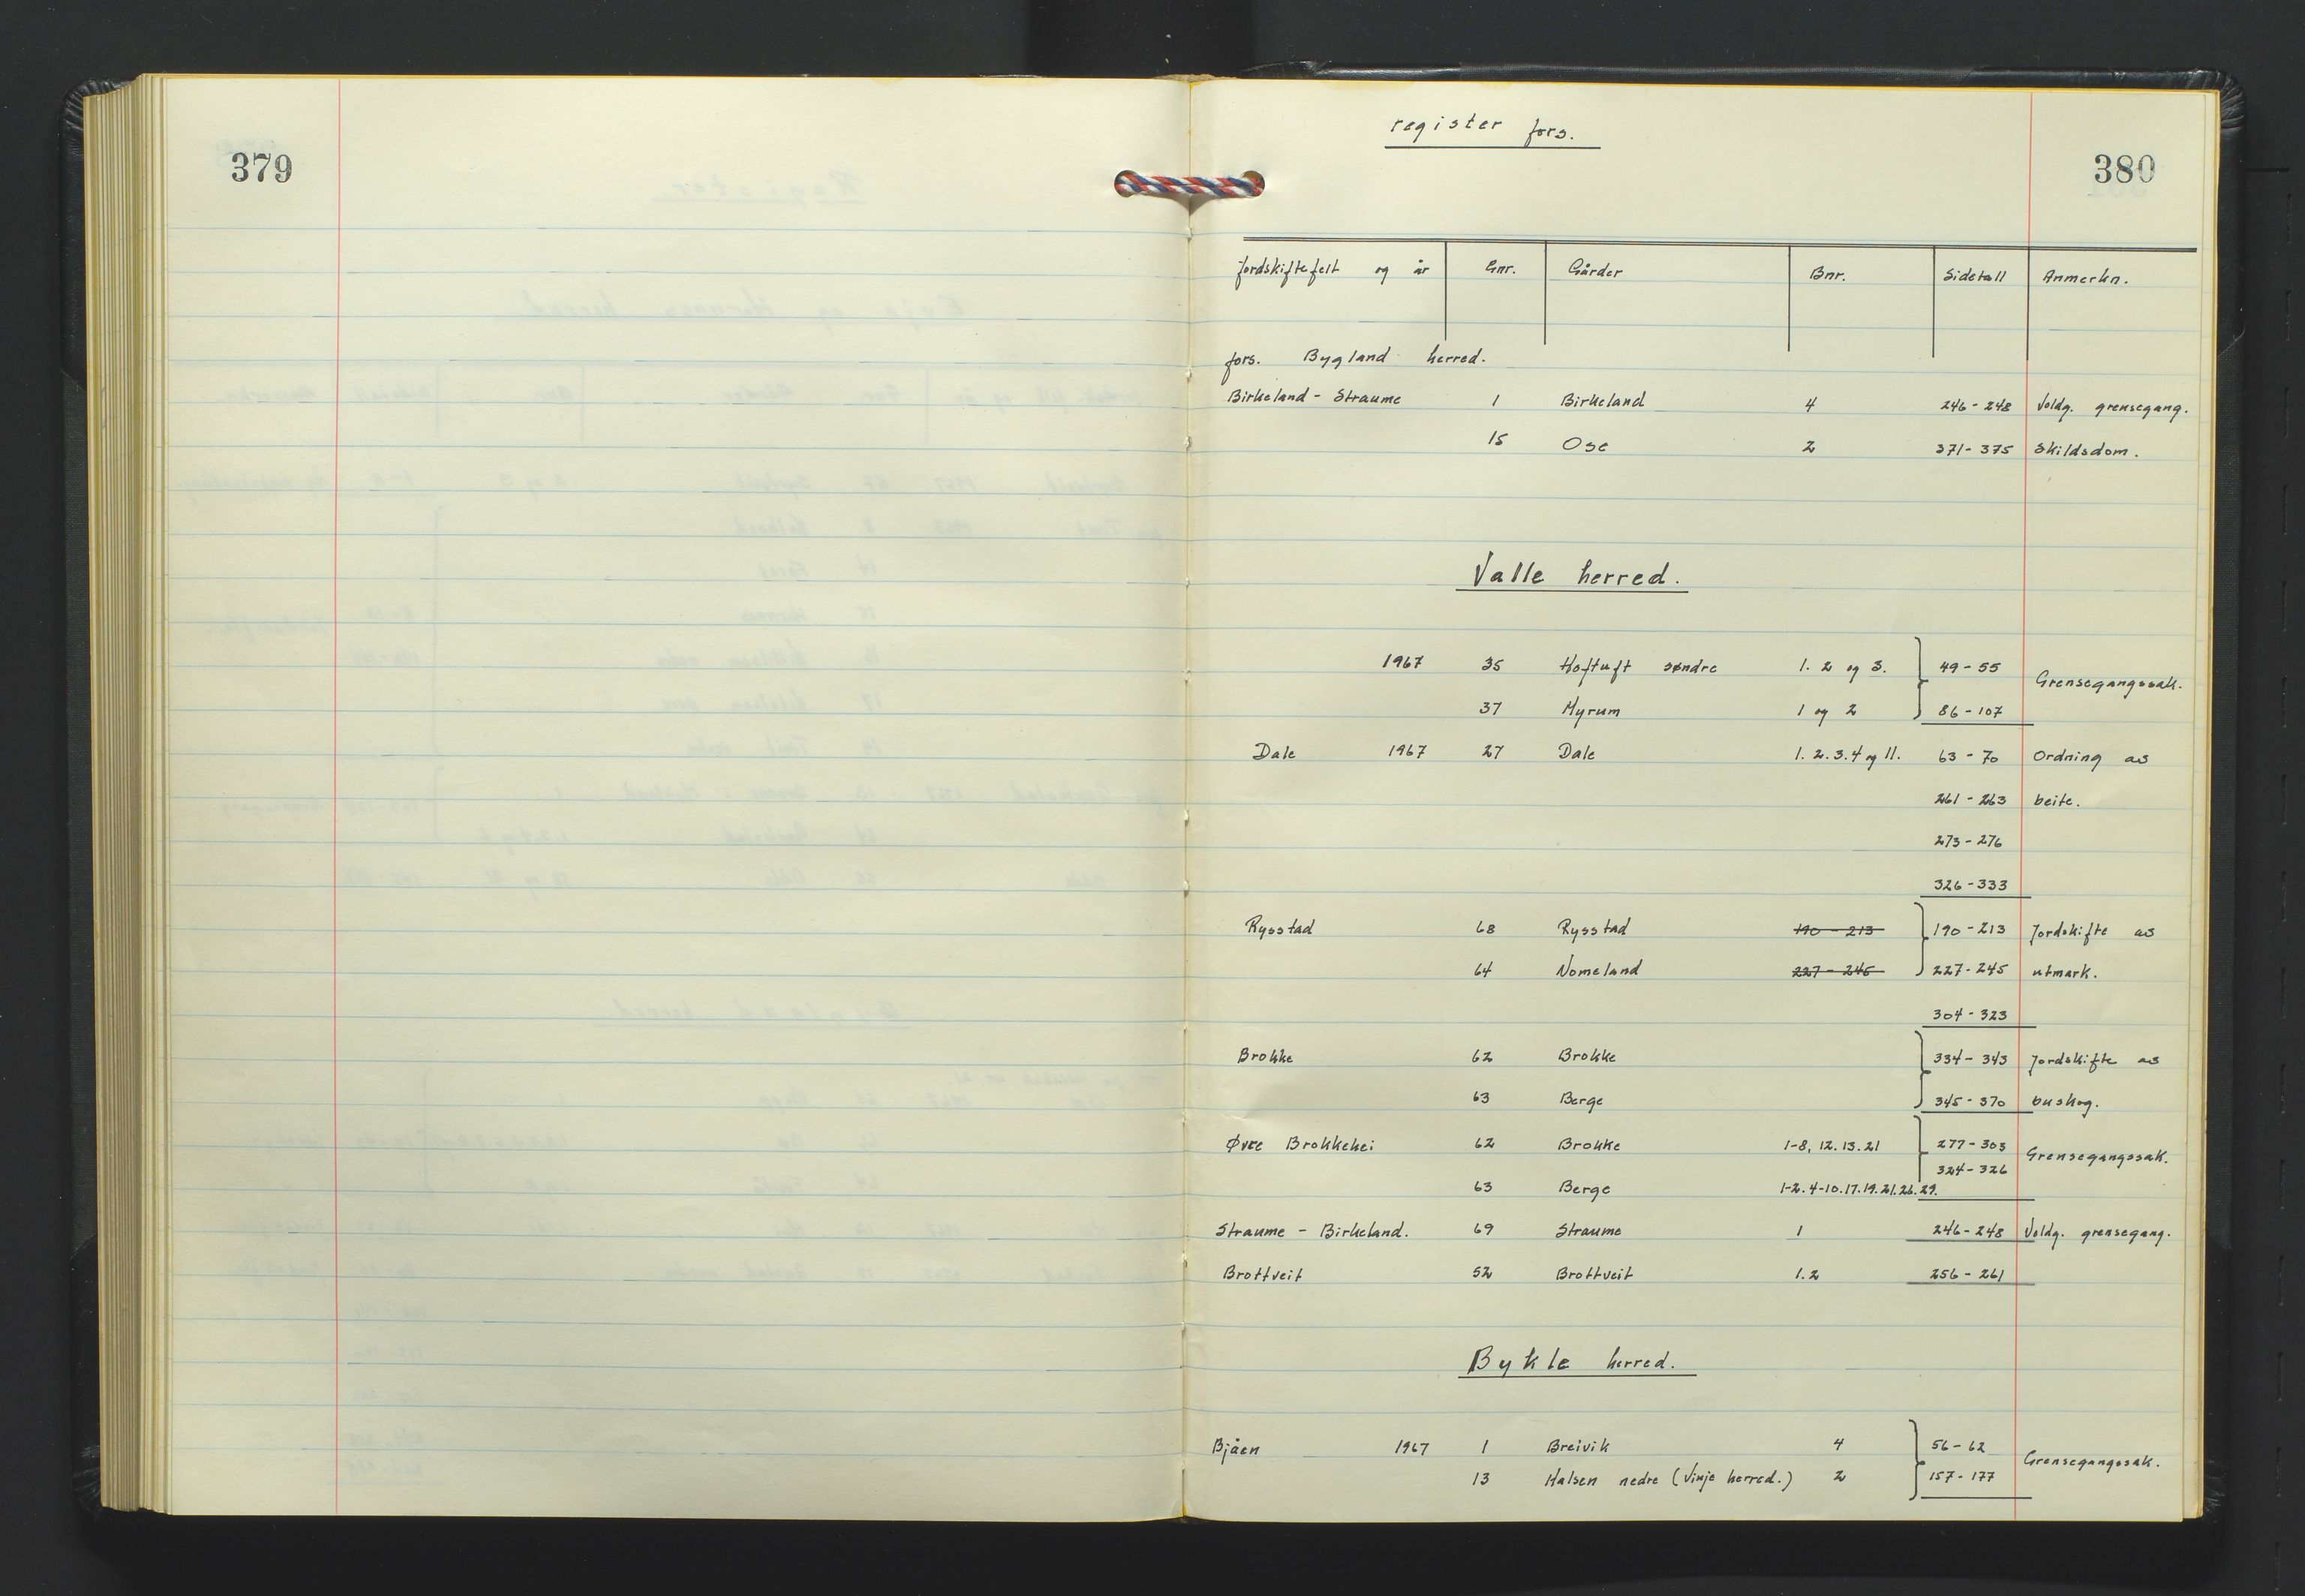 379
register fors.
380
Jordskiftefelt og år Gnr. Gårder Bnr. Sidetall Anmerkn.
fors. Bygland herred.
Birkeland - Straume 1 Birkeland 4 246 - 248 Voldg. grensegang.
15 Ose 2 371 - 375 Skildsdom.
Valle herred.
1967 35 Hoftuft søndre 1. 2 og 3. 49 - 55 Grensegangssak.
37 Myrum 1 og 2 86 - 107
Dale 1967 27 Dale 1. 2. 3. 4 og 11. 63 - 70 Ordning av
261 - 263 beite.
273 - 276
326 - 333
Rysstad 68 Rysstad 190 - 213 190 - 213 Jordskifte av
64 Nomeland 227 - 245 227 - 245 utmark.
304 - 323
Brokke 62 Brokke 334 - 343 Jordskifte av
63 Berge 345 - 370 buskog.
Øvre Brokkehei 62 Brokke 1-8, 12. 13. 21 277 - 303 Grensegangssak.
324 - 326
63 Berge 1-2. 4-10. 17. 19. 21. 26. 29.
Straume - Birkeland. 69 Straume 1 246 - 248 Voldg. grensegang.
Brottveit 52 Brottveit 1. 2 256 - 261
Bykle herred.
Bjåen 1967 1 Breivik 4 56 - 62 Grensegangssak.
13 Halsen nedre (Vinje herred.) 2 157 - 177